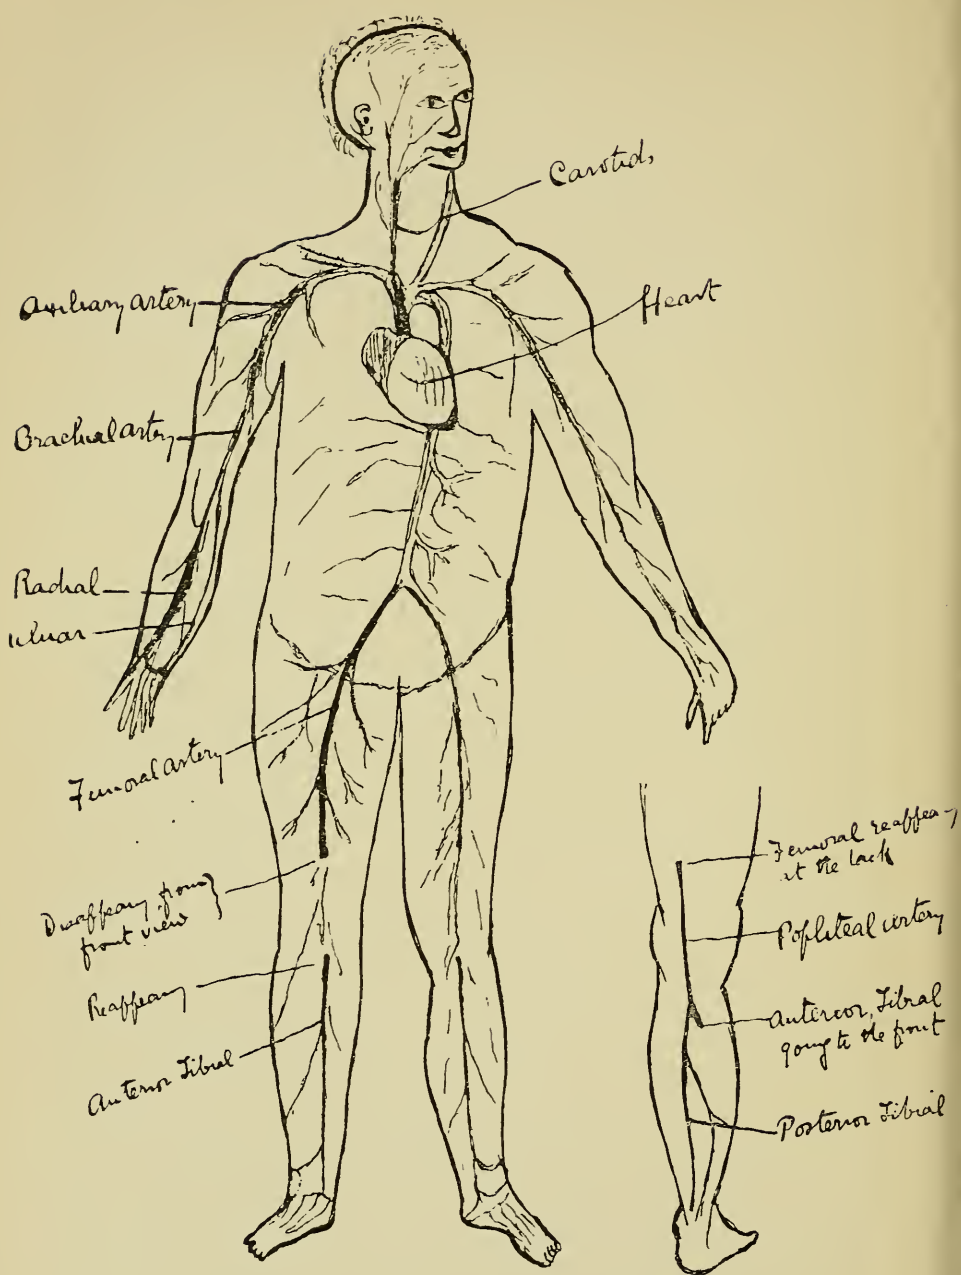 Carotids
Axiliary artery
Heart
Brachial artery
Radial
Ulnar
Femoral artery
Disappears from
front view
Reappears
Anterior Tibial
Femoral reappears
at the back
Popliteal artery
Anterior Tibial
going to the front
Posterior Tibial